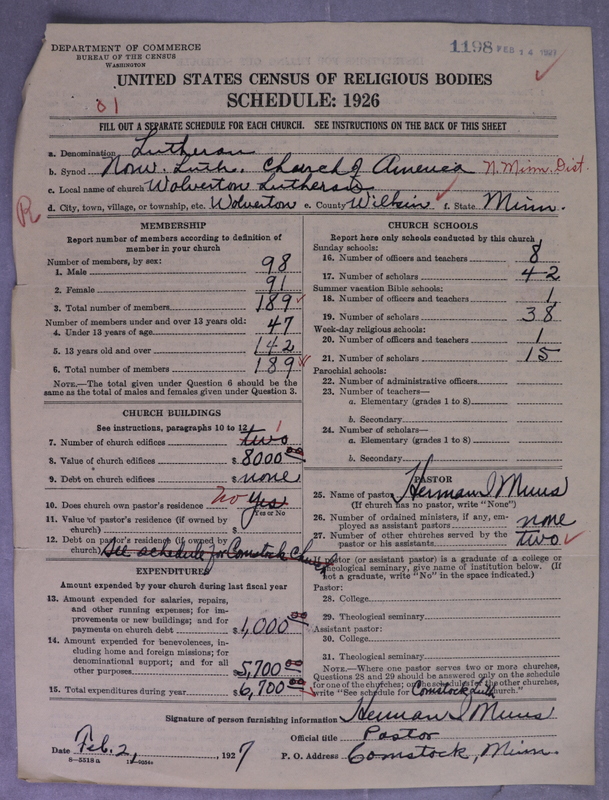 DEPARTMENT OF COMMERCE
BUREAU OF THE CENSUS
WASHINGTON
1198 FEB 14 1927
UNITED STATES CENSUS OF RELIGIOUS BODIES
SCHEDULE: 1926
81
FILL OUT A SEPARATE SCHEDULE FOR EACH CHURCH. SEE INSTRUCTIONS ON THE BACK OF THIS SHEET
a. Denomination Lutheran
b. Synod Norw. Luth. Church of America N. Minn. Dist.
c. Local name of church Wolverton Lutheran
d. City, town, village, or township, etc. Wolverton e. County Wilkin f. State Minn.
R
MEMBERSHIP
Report number of members according to definition of
member in your church
Number of members, by sex:
1. Male 98
2. Female 91
3. Total number of members 189
Number of members under and over 13 years old:
4. Under 13 years of age 47
5. 13 years old and over 142
6. Total number of members 189
NOTE.—The total given under Question 6 should be the
same as the total of males and females given under Question 3.
CHURCH BUILDINGS
See instructions, paragraphs 10 to 12
7. Number of church edifices two 1
8. Value of church edifices $ 8000 00
9. Debt on church edifices $ none
10. Does church own pastor's residence no Yes
Yes or No
11. Value of pastor's residence (if owned by
church) $
12. Debt on pastor's residence (if owned by
church) See schedule for Comstock Church
EXPENDITURES
Amount expended by your church during last fiscal year
13. Amount expended for salaries, repairs,
and other running expenses; for im-
provements or new buildings; and for
payments on church debt $ 1,000 00
14. Amount expended for benevolences, in-
cluding home and foreign missions; for
denominational support; and for all
other purposes 5,700 00
15. Total expenditures during year $ 6,700 00
CHURCH SCHOOLS
Report here only schools conducted by this church
Sunday schools:
16. Number of officers and teachers 8
17. Number of scholars 42
Summer vacation Bible schools:
18. Number of officers and teachers 1
19. Number of scholars 38
Week-day religious schools:
20. Number of officers and teachers 1
21. Number of scholars 15
Parochial schools:
22. Number of administrative officers
23. Number of teachers—
a. Elementary (grades 1 to 8)
b. Secondary
24. Number of scholars—
a. Elementary (grades 1 to 8)
b. Secondary
PASTOR
25. Name of pastor Herman J Muus
(If church has no pastor, write "None")
26. Number of ordained ministers, if any, em-
ployed as assistant pastors none
27. Number of other churches served by the
pastor or his assistants two
If pastor (or assistant pastor) is a graduate of a college or
theological seminary, give name of institution below. (If
not a graduate, write "No" in the space indicated.)
Pastor:
28. College
29. Theological seminary
Assistant pastor:
30. College
31. Theological seminary
NOTE.—Where one pastor serves two or more churches,
Questions 28 and 29 should be answered only on the schedule
for one of the churches; on the schedules for the other churches,
write "See schedule for Comstock Luth Church."
Signature of person furnishing information Herman J Muus
Official title Pastor
Date Feb. 2, 1927 P. O. Address Comstock, Minn.
8—5518 a